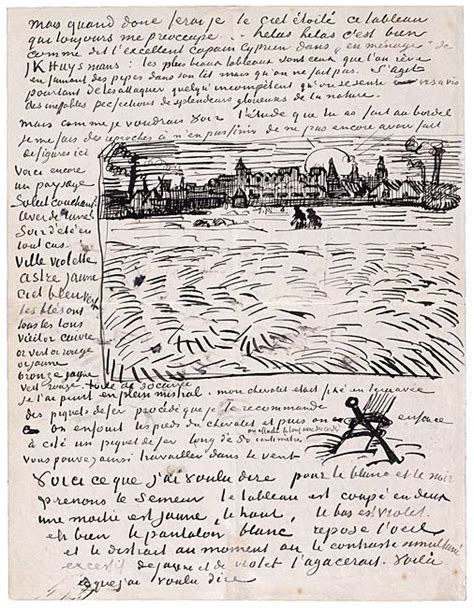 mais quand donc ferai je le ciel étoilé ce tableau
qui toujours me préoccupe – helas helas c'est bien
comme dit l'excellent copain Cyprien dans "en ménage" de
J K Huysmans: les plus beaux tableaux sont ceux que l'on rêve
en fumant des pipes dans son lit mais qu'on ne fait pas. S'agit
pourtant de les attaquer quelqu'incompétent qu'on se sente vis à vis
des ineffables perfections de splendeurs glorieuses de la nature.
Mais comme je voudrais voir l'étude que tu as fait au bordel
Je me fais des reproches à n'en pas finir de ne pas encore avoir fait
de figures ici
Voici encore
un paysage
Soleil couchant
lever de lune
Soir d'été en
tout cas.
Ville violette
astre jaune
ciel bleu vert
les blés ont
tous les tons
vieil or cuivre
or vert or rouge
or jaune
bronze jaune
vert rouge. toile de 30 carrée
je l'ai peint en plein mistral. mon chevalet était fixé en terre avec
des piquets de fer procédé que je te recommande
on enfouit les pieds du chevalet et puis on enfonce
on attache le tout avec des cordes
à côté un piquet de fer long de 50 centimètres
Vous pouvez ainsi travailler dans le vent
Voici ce que j'ai voulu dire pour le blanc et le noir
prenons le Semeur le tableau est coupé en deux
une moitié est jaune, le haut, le bas est violet.
eh bien le pantalon blanc repose l'oeil
et le distrait au moment où le contraste simultané
excessif de jaune et de violet l'agacerait. Voilà
ce que j'ai voulu dire